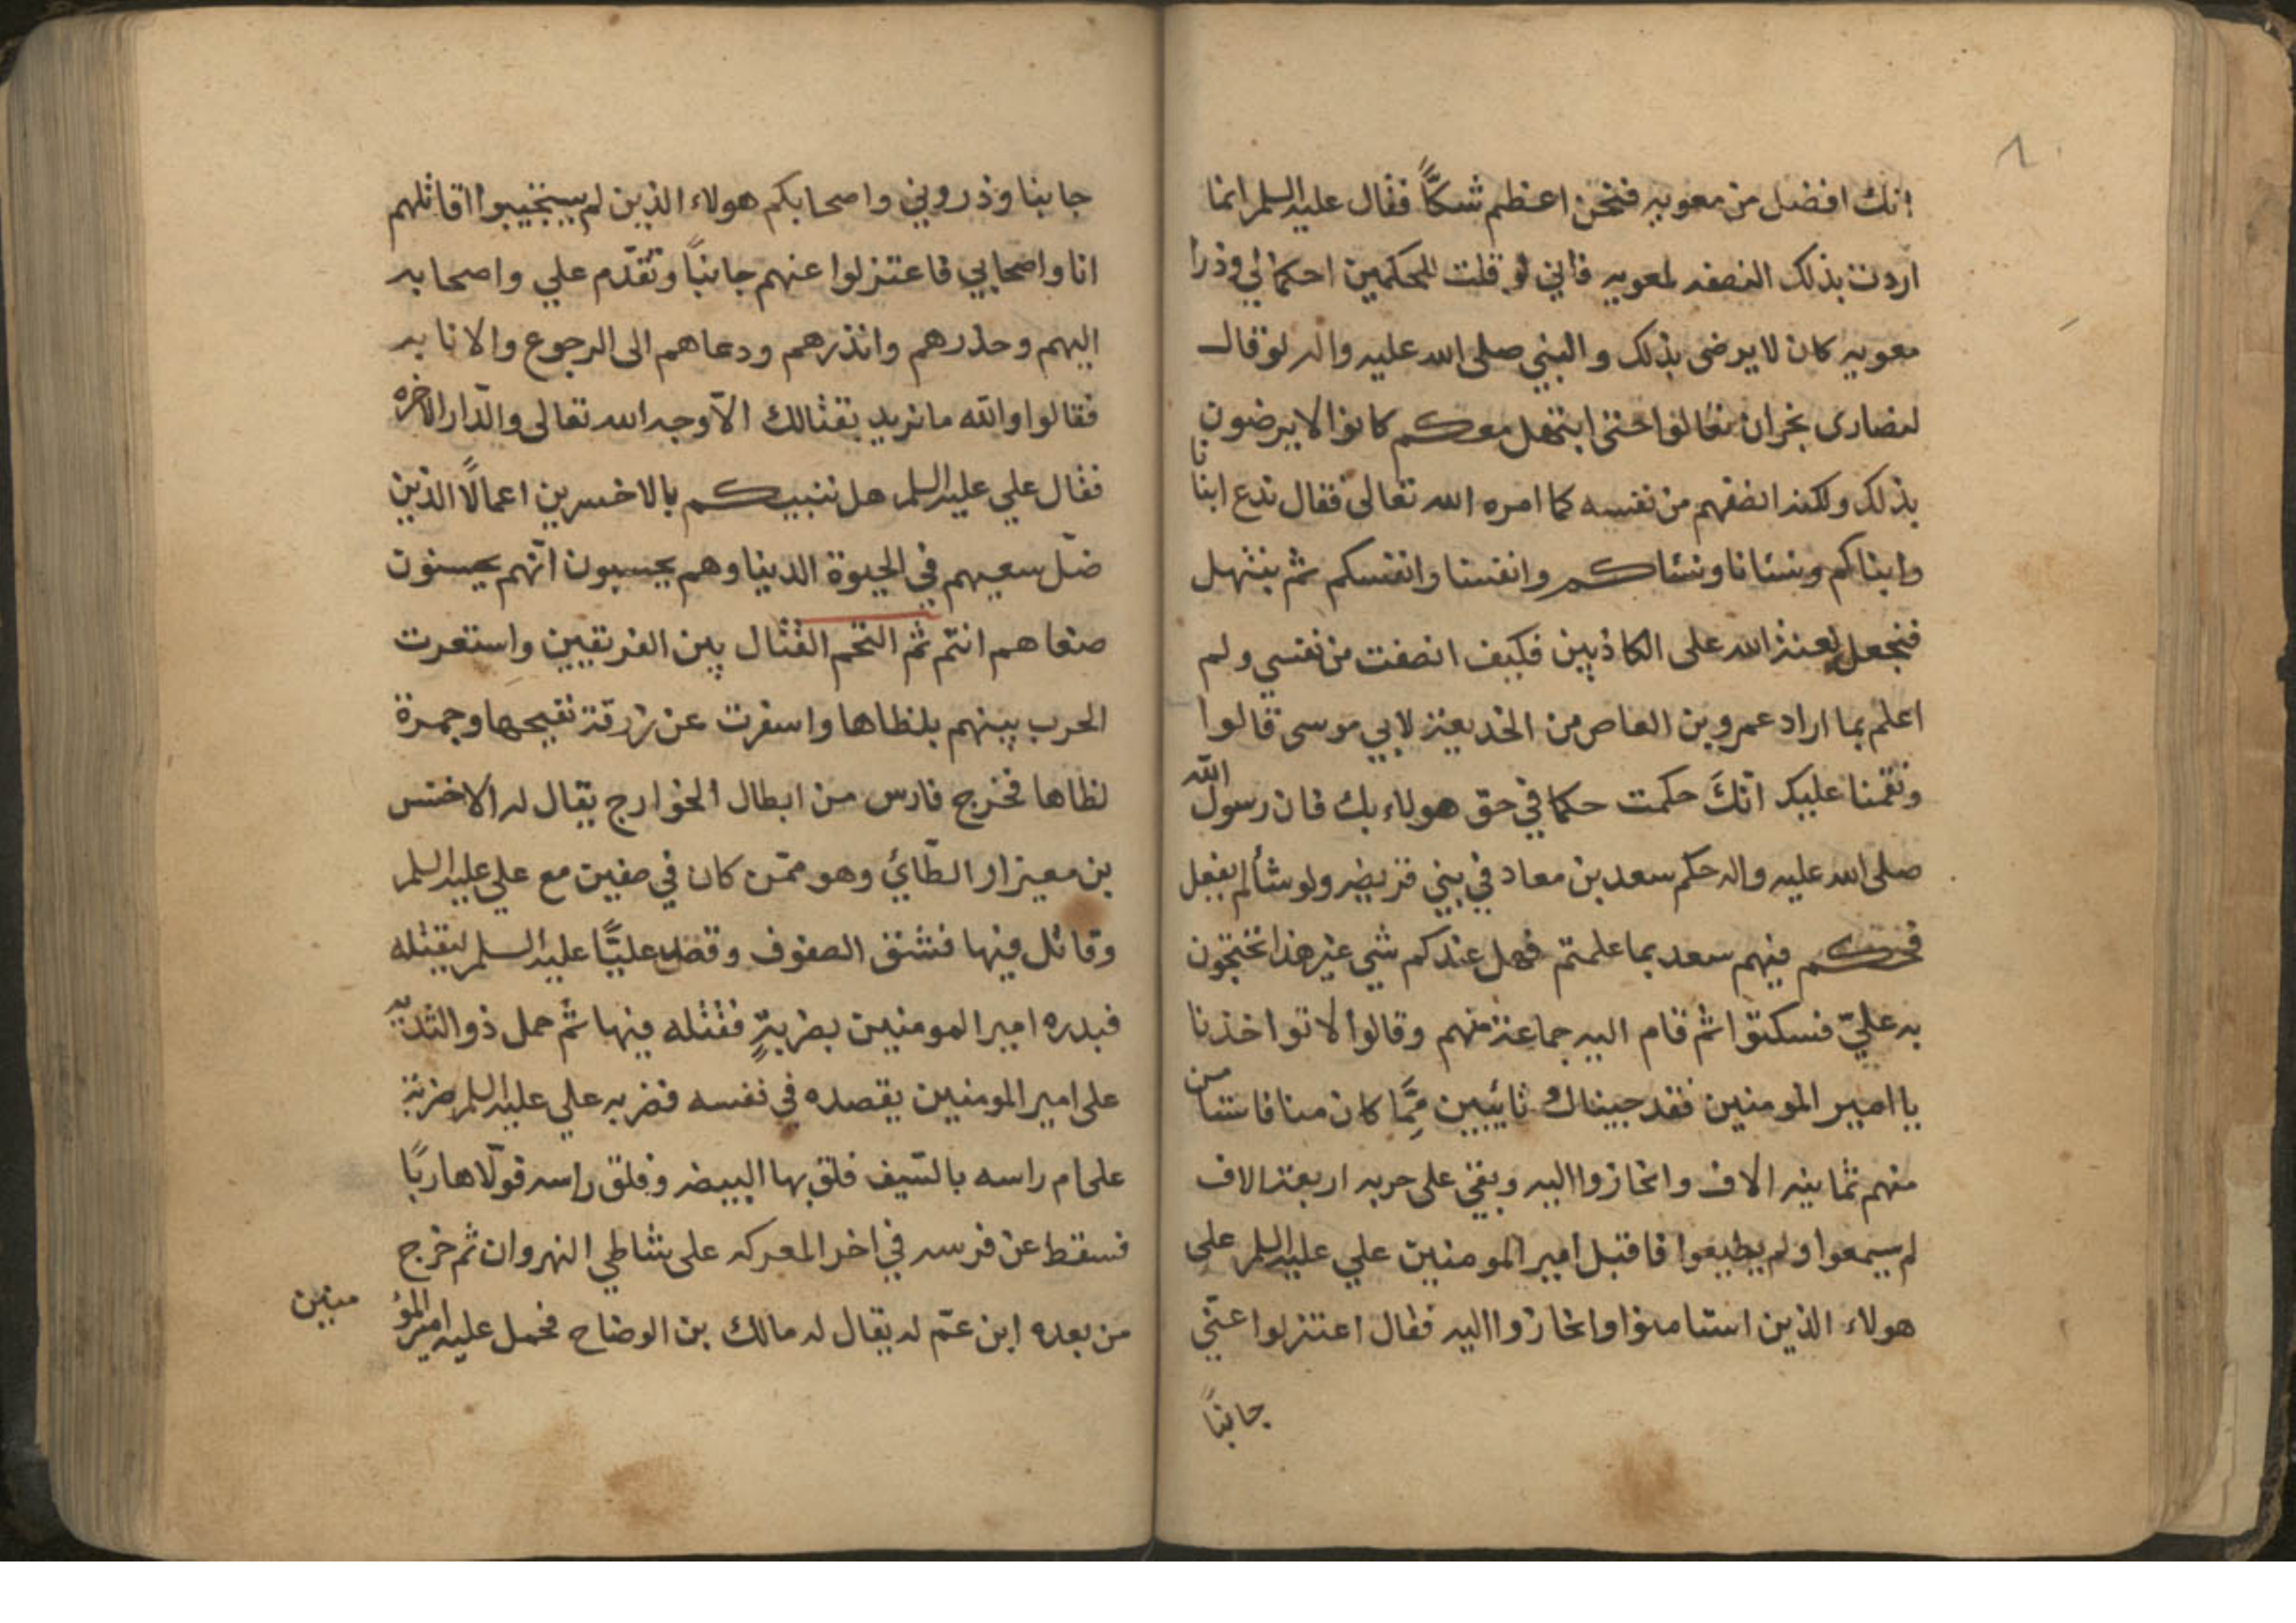 انك افضل من معويه فنحن اعظم شكًّا فقال عليه السلم انما
اردت بذلك النصفه لمعويه فاني لو قلت للمحكمين احكما لي وذرا
معويه كان لا يرضى بذلك والنبي صلى الله عليه واله لو قال
لنصارى نجران تعالوا حتى ابتهل معكم كانوا لا يرضون
بذلك ولكنه انصفهم من نفسه كما امره الله تعالى فقال ندع ابنانا
وابناكم ونسانا ونساكم وانفسنا وانفسكم ثم نبتهل
فنجعل لعنة الله على الكاذبين فكيف انصفت من نفسي ولم
اعلم بما اراد عمرو بن العاص من الخديعة لابي موسى قالوا
ونقمنا عليك انّكَ حكمت حكما في حق هولاء بك فان رسول الله
صلى الله عليه واله حكم سعد بن معاد في بني قريضه ولو شا لم يفعل
فحكم فيهم سعد بما علمتم فهل عندكم شي غير هذا تحتجون
به عليّ فسكتوا ثم قام اليه جماعة منهم وقالوا لا تواخذنا
يا امير المومنين فقد جيناك تائبين ممّا كان منا فاستامن
منهم ثمانيه الاف وانحازوا اليه وبقي على حربه اربعة الاف
لم يسمعوا ولم يطيعوا فاقبل امير المومنين علي عليه السلم على
هولاء الذين استامنوا وانحازوا اليه فقال اعتزلوا عنّي
جانبًا
جانبا وذروني واصحابكم هولاء الذين لم يستجيبوا اقاتلهم
انا واصحابي فاعتزلوا عنهم جانبًا وتقدّم علي واصحابه
اليهم وحذرهم وانذرهم ودعاهم الى الرجوع والانابه
فقالوا والله ما نريد بقتالك الاّ وجه الله تعالى والدّار الاخره
فقال علي عليه السلم هل ننبيكم بالاخسرين اعمالاً الذين
ضلّ سعيهم في الحيوة الدنيا وهم يحسبون انّهم يحسنون
صنعا هم انتم ثم التحم القتال بين الفريقين واستعرت
الحرب بينهم بلظاها واسفرت عن زرقة نقيحها وجمرة
لظاها فخرج فارس من ابطال الخوارج يقال له الاخنس
بن معيزار الطّائي وهو ممّن كان في صفين مع علي عليه السلم
وقاتل فيها فشق الصفوف وقصد عليًّا عليه السلم ليقتله
فبدره امير المومنين بضربةٍ فقتله فيها ثم حمل ذو الثديّه
على امير المومنين يقصده في نفسه فضربه علي عليه السلم ضربة
على ام راسه بالسّيف فلق بها البيضه وفلق راسه فولّا هاربًا
فسقط عن فرسه في اخر المعركه على شاطي النهروان ثم خرج
من بعده ابن عمّ له يقال له مالك بن الوضاح فحمل عليه امير المؤ
منين